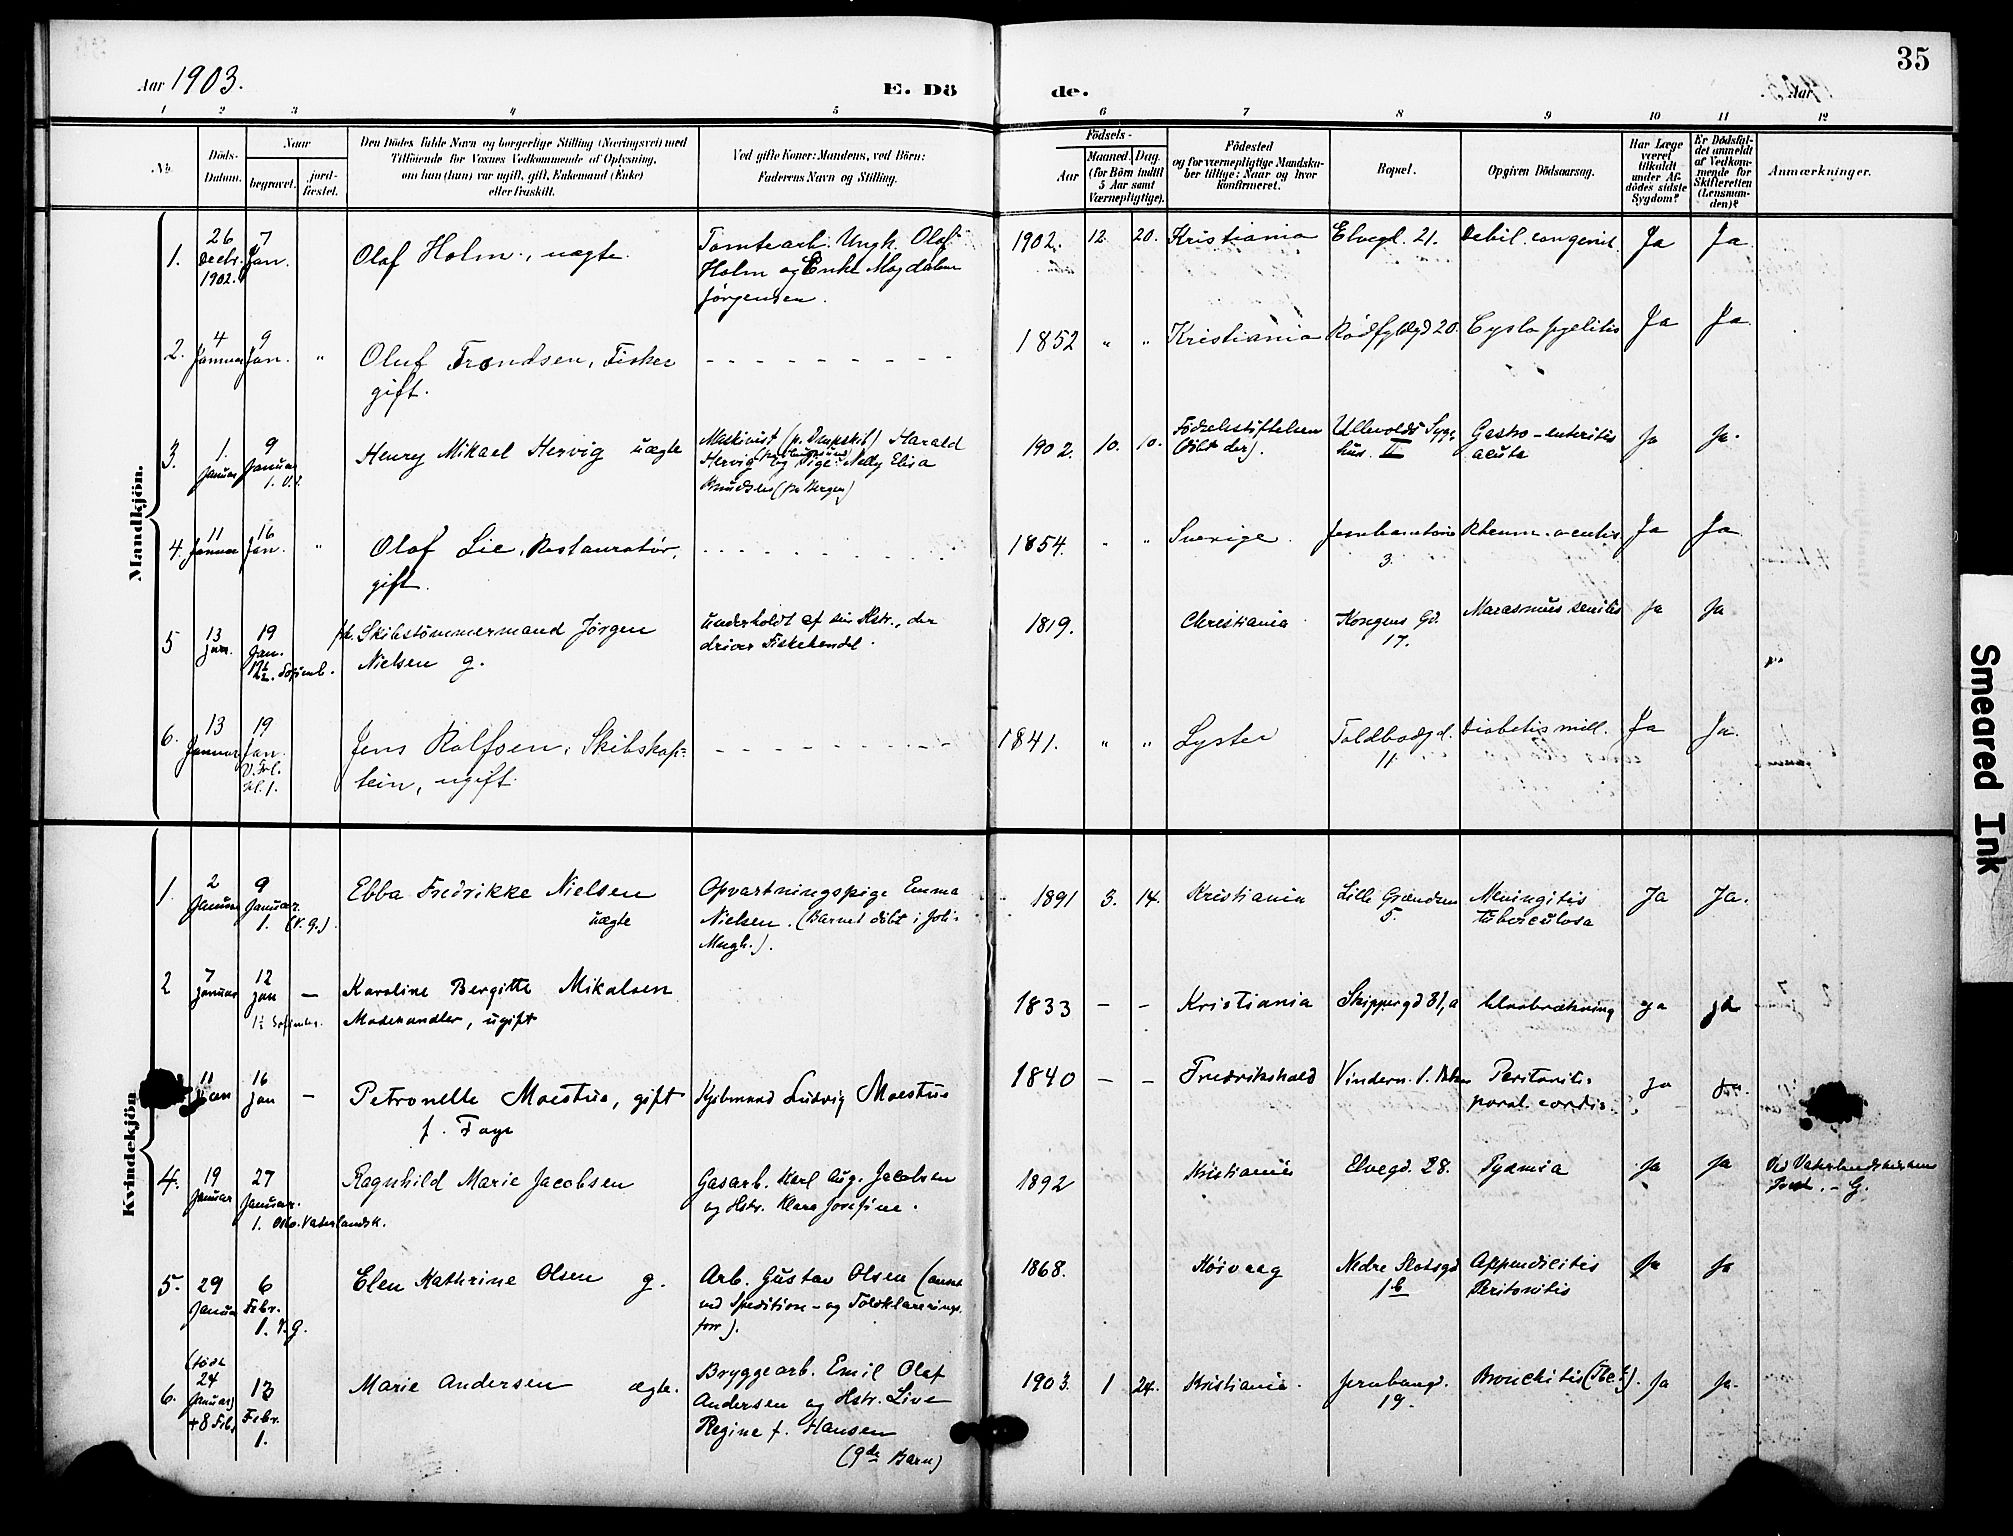 Aar 1903.
E. Dö
de.
Aar
35
1 2 3 4 5 6 7 8 9 10 11 12
No.
Döds-Datum.
Naar
begravet.
jord-fæstet.
Den Dödes fulde Navn og borgerlige Stilling (Næringsvei) med
Tilföiende for Voxnes Vedkommende af Oplysning,
om han (hun) var ugift, gift, Enkemand (Enke)
eller fraskilt.
Ved gifte Koner: Mandens, ved Börn:
Faderens Navn og Stilling.
Födsels-
Aar
Maaned. Dag.
(for Börn indtil
5 Aar samt
Værnepligtige).
Födested
og for værnepligtige Mandska-
ber tillige: Naar og hvor
konfirmeret.
Bopæl.
Opgiven Dödsaarsag.
Har Læge
været
tilkaldt
under Af-
dödes sidste
Sygdom?
Er Dödsfal-
det anmeldt
af Vedkom-
mende for
Skifteretten
(Lensman-
den)?
Anmærkninger.
Mandkjön.
1. 26 Decbr. 1902. 7 Jan. Olaf Holm, uægte.
Tomtearb. Ungk. Olaf
Holm og Enke Magdalene
Jørgensen.
1902. 12 20. Kristiania Elvegt. 21. Debil. congenit. Ja Ja
2. 4 Januar 9 Jan. " Oluf Trondsen, Fisker
gift.
1852 " " Kristiania 20. Cysto pyelitis Ja Ja
3. 1. Januar 9 Januar Henry Mikael Hervig uægte
Maskinist (p. Dampskib) Harald
Hervig og Pige Nelly Elisa
Knudsen (fra Bergen)
1902. 10. 10. Födselsstiftelsen
(döbt der).
Ullevolds Syge-
hus. II
Gastro-enteritis
acuta
Ja Ja.
4. 11 Januar 16 Jan. " Olaf Lie, Restauratør,
gift.
1854. " " Sverige.
3.
Rheum. Ja Ja
5 13 Jan. 19 Jan. Skibstømmermand Jørgen
Nielsen g.
underholdt af sin Hstr., der
driver Fiskehandel.
1819. Christiania Kongens Gd.
17.
Marasmus senilis Ja Ja
6. 13 Januar 19 Jan. Jens Rolfsen, Skibskap-
tein, ugift.
1841. " " Lyster Toldbodgd.
11.
Diabetis mill. Ja Ja.
Kvindekjön
1. 2 Januar 9 Januar. 1. (V.g.) Ebba Fredrikke Nielsen
uægte
Opvartningspige Emma
Nielsen. (Barnet döbt i Joh.
Mngh.).
1891 3. 14. Kristiania Lille Grændsen
5.
Meningitis
tuberculosa
Ja Ja.
2 7 Januar 12 Jan — Karoline Bergitte Mikalsen
Modehandler, ugift
1833 — — Kristiania Skippergd 31,a Ja Ja
11 Jan 16 Jan — Petronelle Moestue, gift
f. Faye
Kjöbmand Ludvig Moestue
1840 — — Fredrikshald Vindern. Peritonitis
paral. cordis.
Ja Ja.
4. 19 Januar 27 Januar. 1. Vaterlandsk. Ragnhild Marie Jacobsen
Gasarb. Karl Aug. Jacobsen
og Hstr. Klara Josefine.
1892 Kristiania Elvegd. 28. Pyæmia Ja Ja
5. 29 Januar 6 Febr. 1. V.G. Elen Kathrine Olsen g.
Arb. Gustav Olsen (ansat
ved Spedition- og Toldklarerings
forr.).
1868. Høivaag Nedre Slotsgd
1b
Appendicitis
Peritonitis
Ja Ja
6. (født 24 Januar) + 8 Feb. 13 Febr. 1. Marie Andersen ægte.
Bryggearb. Emil Olaf
Andersen og Hstr. Live
Regine f. Hansen
(9de Barn)
1903. 1 24. Kristiania. Jernbangd.
19.
Bronchitis (Tbc?). Ja Ja.
Smeared Ink